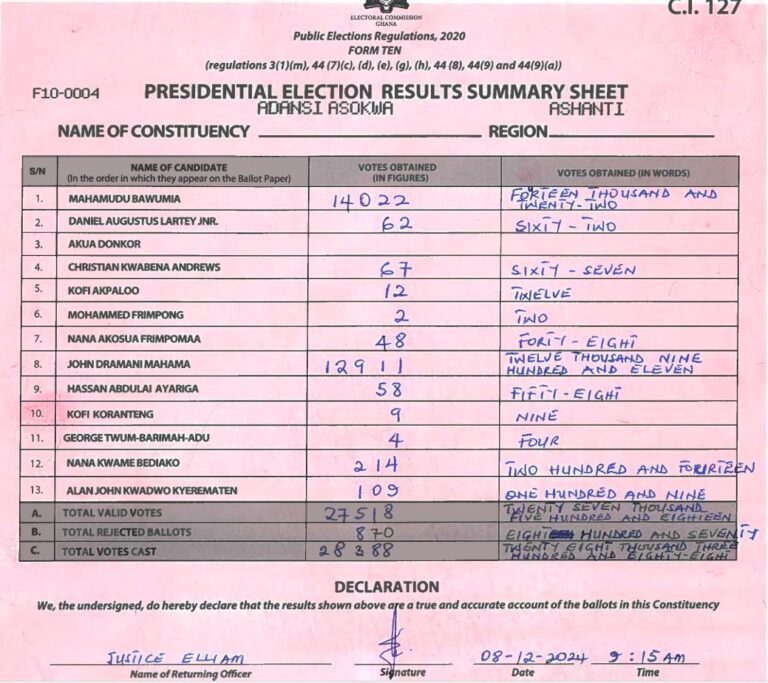 C.I. 127
ELECTORAL COMMISSION
GHANA
Public Elections Regulations, 2020
FORM TEN
(regulations 3(1)(m), 44 (7)(c), (d), (e), (g), (h), 44 (8), 44(9) and 44(9)(a))
F10-0004 PRESIDENTIAL ELECTION RESULTS SUMMARY SHEET
ADANSI ASOKWA ASHANTI
NAME OF CONSTITUENCY REGION
S/N NAME OF CANDIDATE (In the order in which they appear on the Ballot Paper) VOTES OBTAINED (IN FIGURES) VOTES OBTAINED (IN WORDS)
1. MAHAMUDU BAWUMIA 14022 FORTEEN THOUSAND AND TWENTY-TWO
2. DANIEL AUGUSTUS LARTEY JNR. 62 SIXTY-TWO
3. AKUA DONKOR
4. CHRISTIAN KWABENA ANDREWS 67 SIXTY-SEVEN
5. KOFI AKPALOO 12 TWELVE
6. MOHAMMED FRIMPONG 2 TWO
7. NANA AKOSUA FRIMPOMAA 48 FORTY-EIGHT
8. JOHN DRAMANI MAHAMA 12911 TWELVE THOUSAND NINE HUNDRED AND ELEVEN
9. HASSAN ABDULAI AYARIGA 58 FIFTY-EIGHT
10. KOFI KORANTENG 9 NINE
11. GEORGE TWUM-BARIMAH-ADU 4 FOUR
12. NANA KWAME BEDIAKO 214 TWO HUNDRED AND
13. ALAN JOHN KWADWO KYEREMATEN 109 ONE HUNDRED AND NINE
A. TOTAL VALID VOTES 27518 TWENTY SEVEN THOUSAND FIVE HUNDRED AND EIGHTEEN
B. TOTAL REJECTED BALLOTS 870 EIGHT HUNDRED AND SEVENTY
C. TOTAL VOTES CAST 28388 TWENTY EIGHT THOUSAND THREE HUNDRED AND EIGHTY-EIGHT
DECLARATION
We, the undersigned, do hereby declare that the results shown above are a true and accurate account of the ballots in this Constituency
JUSTICE ELLIAM 08-12-2024 9:15AM
Name of Returning Officer Signature Date Time